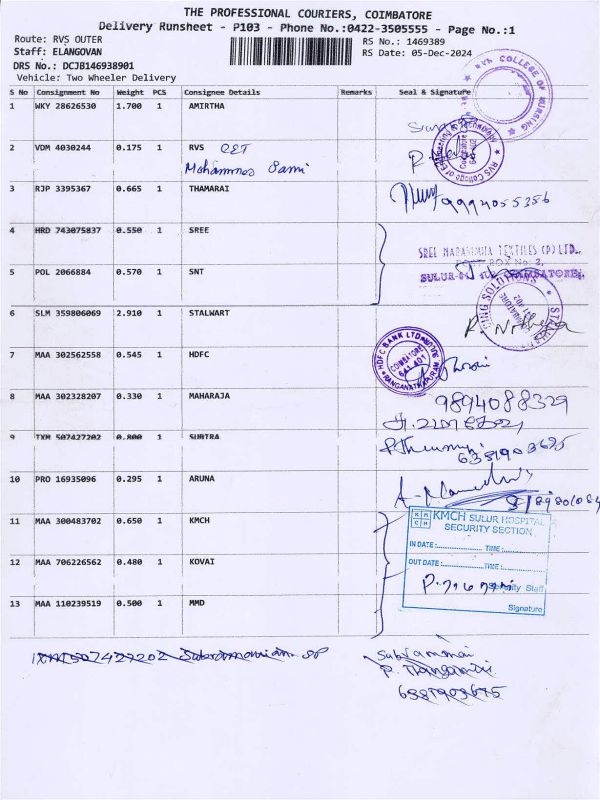 THE PROFESSIONAL COURIERS, COIMBATORE
Delivery Runsheet - P103 - Phone No.:0422-3505555 - Page No.:1
Route: RVS OUTER
RS No.: 1469389
Staff: ELANGOVAN
RS Date: 05-Dec-2024
DRS No.: DCJB146938901
Vehicle: Two Wheeler Delivery
S No Consignment No Weight PCS Consignee Details Remarks Seal & Signature
1 WKY 28626530 1.700 1 AMIRTHA
COLLEGE OF NURSING
2 VDM 4030244 0.175 1 RVS CET
Mohammed Sami
RVS College of
3 RJP 3395367 0.665 1 THAMARAI
9994055356
4 HRD 743075837 0.550 1 SREE
SREE NARASIMHA TEXTILES (P) LTD.,
POST BOX No: 2,
5 POL 2066884 0.570 1 SNT
SULUR COIMBATORE.
6 SLM 359806069 2.910 1 STALWART
SOLUTIONS
R. Nithya
7 MAA 302562558 0.545 1 HDFC
HDFC BANK LTD
COIMBATORE
641 401
8 MAA 302328207 0.330 1 MAHARAJA
9894088329
9 TXM 507427202 0.800 1 SUBTRA
6381903675
10 PRO 16935096 0.295 1 ARUNA
11 MAA 300483702 0.650 1 KMCH
KMCH SULUR HOSPITAL
SECURITY SECTION
IN DATE : TIME :
12 MAA 706226562 0.480 1 KOVAI
OUT DATE : TIME :
Security Staff
13 MAA 110239519 0.500 1 MMD
Signature
TXM507427202 Subramaniam SP
P. Thangamani
6381903675